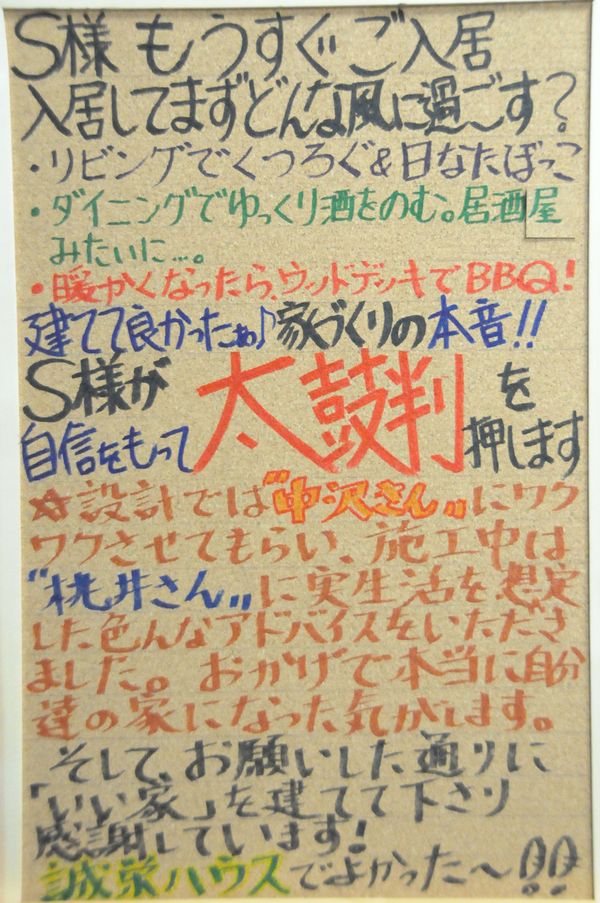 S様 もうすぐ ご入居
入居してまずどんな風に過ごす?
・リビングでくつろぐ&日なたぼっこ
・ダイニングでゆっくり酒をのむ。居酒屋
みたいに…。
・暖かくなったら、ウッドデッキでBBQ!
建てて良かったぁ♪家づくりの本音!!
S様が
自信をもって 太鼓判を押します
☆設計では"中沢さん"にワク
ワクさせてもらい、施工中は
"桃井さん"に実生活を想定
した色んなアドバイスをいただき
ました。おかげで本当に自分
達の家になった気がします。
そして、お願いした通りに
「いい家」を建てて下さり
感謝しています!
誠栄ハウスでよかった〜!!